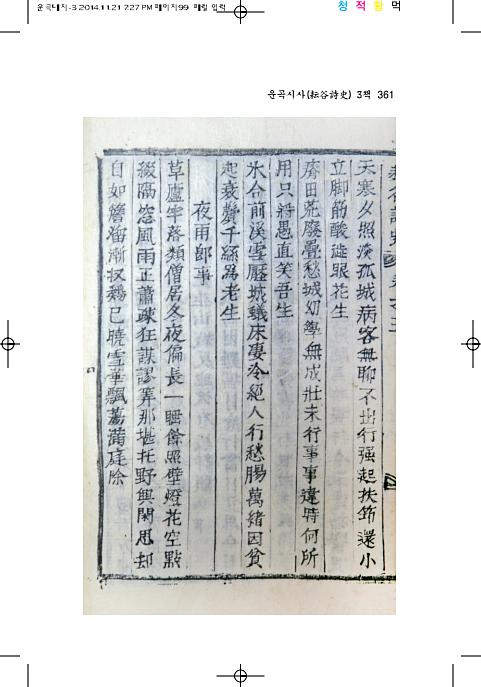 운곡내지-3 2014.11.21 7:27 PM 페이지99 매월 입력
청 적 황 먹
운곡시사(耘谷詩史) 3책 361
天寒夕照淡孤城病客無聊不出行强起扶筇還小
立脚筋酸澁眼花生
麿田荒廢疊愁城幼學無成壯未行事事違時何所
用只將愚直笑吾生
氷合前溪雪壓城蟻床凄冷絕人行愁腸萬緖因貧
起衰鬢千絲爲老生
夜雨卽事
草廬牢落類僧居冬夜偏長一睡餘照壁燈花空點
綴隔窓風雨正蕭疎狂謀謬筭那堪托野興閑思却
自如簷溜漸收鷄已曉雪華飄蕩滿庭除